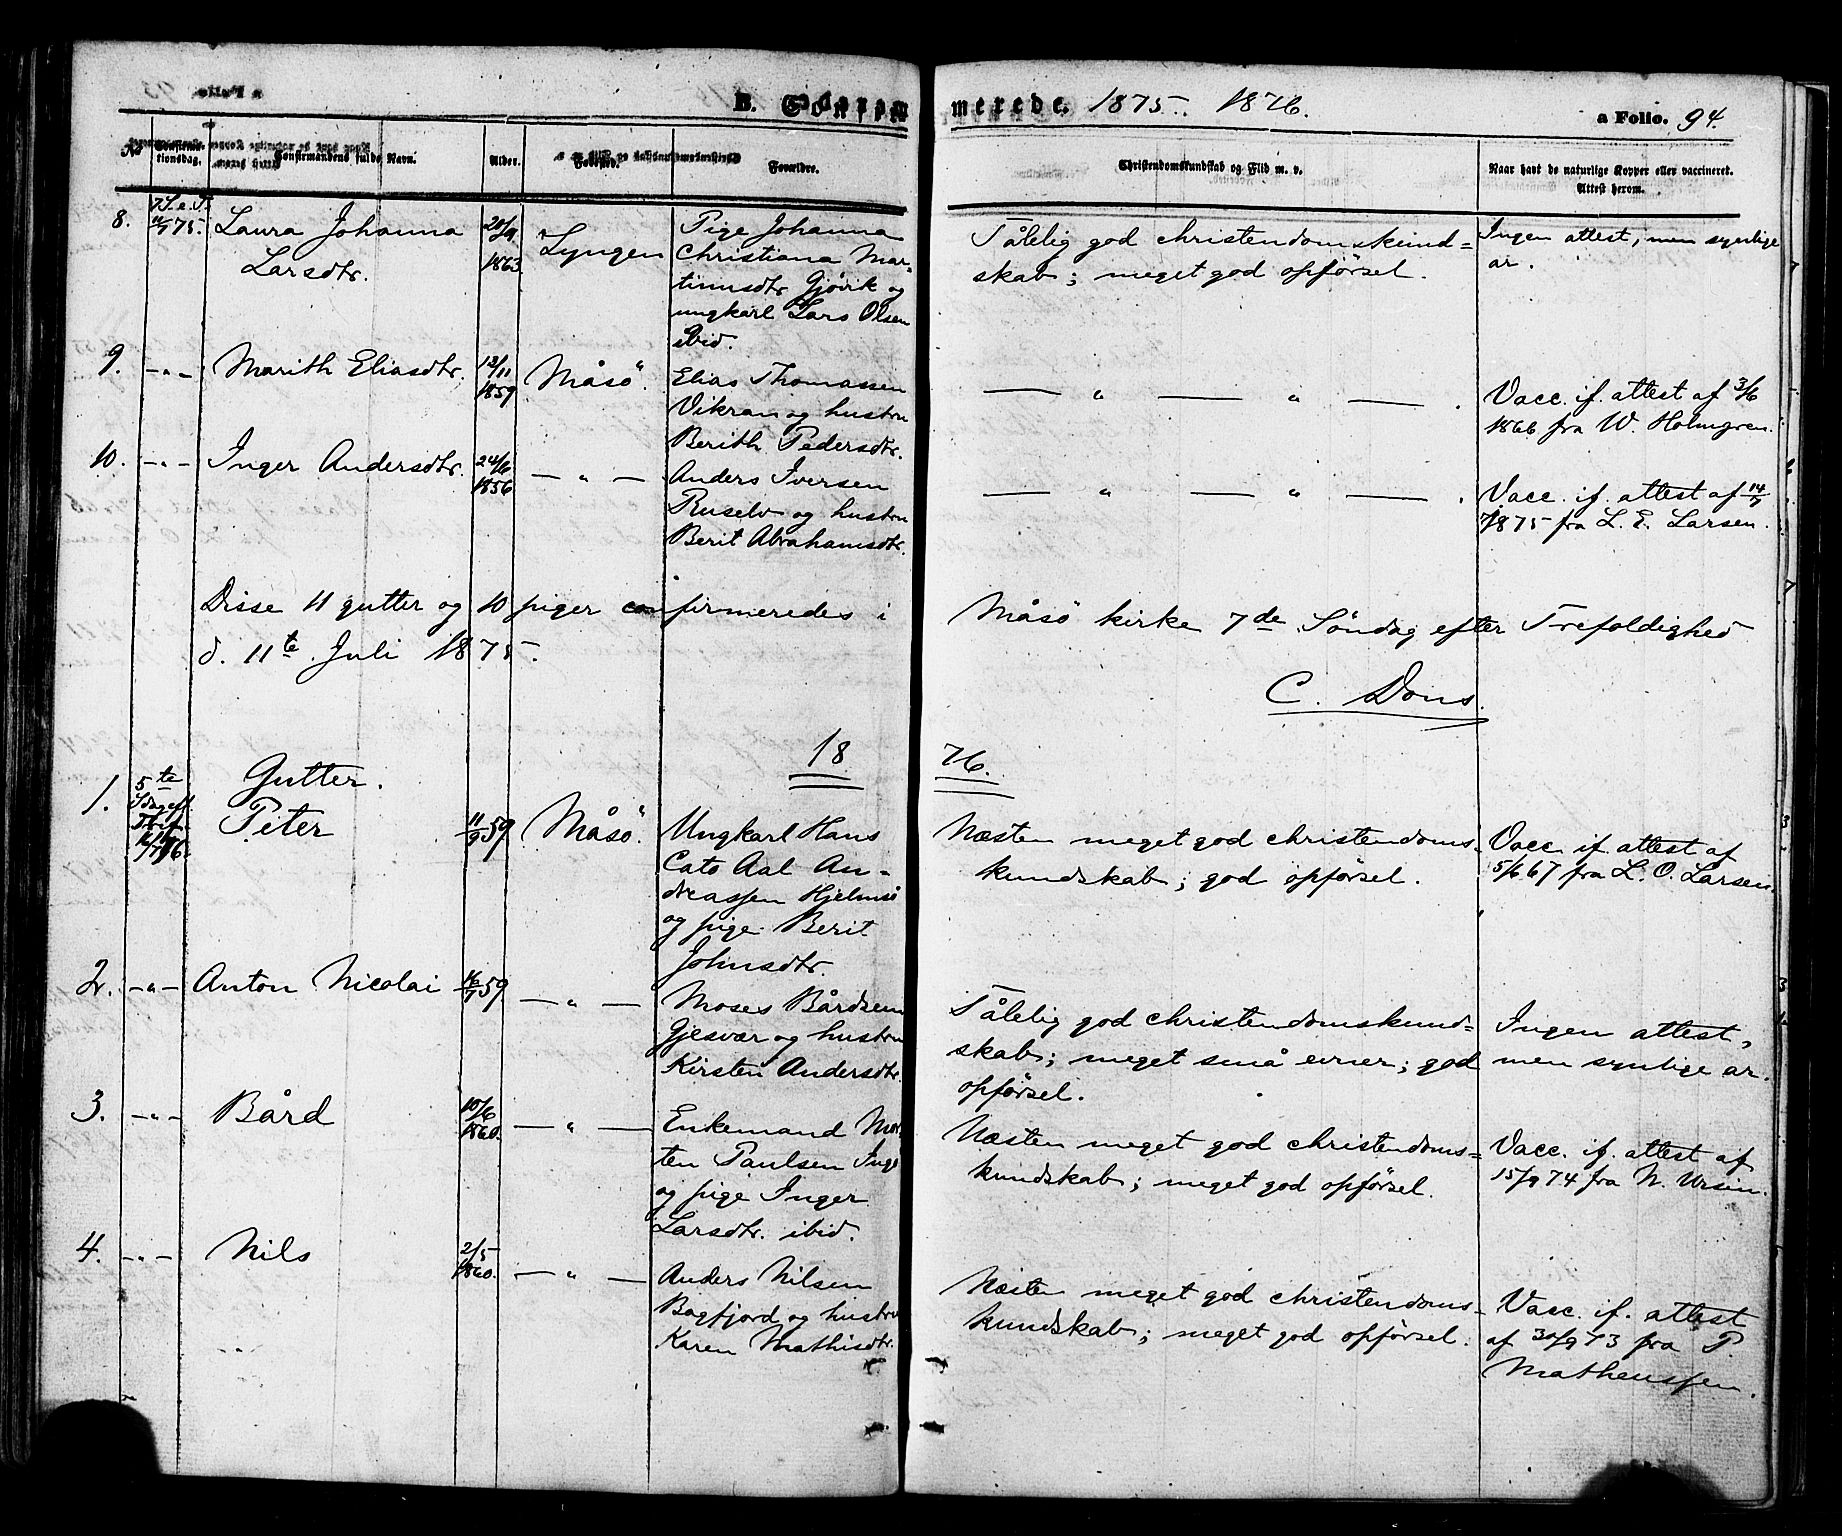 B. Confir
merede. 1875. 1876.
a Folio. 94.
No
Confirma-
tionsdag.
Confirmandens fulde Navn.
Alder.
Fødested.
Forældre.
Christendomskundskab og Flid m. v.
Naar havt de naturlige Kopper eller vaccineret.
Attest herom.
8.
7 S. e. T.
11/7 75.
Laura Johanna
Larsdtr.
20/9
1863
Lyngen
Pige Johanna
Christiana Mar-
tinusdtr Gjövik og
ungkarl Lars Olsen
ibid.
Tålelig god christendomskund=
skab; meget god opførsel.
Ingen attest; men synlige
ar.
9.
— " —
Marith Eliasdtr.
12/11
1859
Måsö.
Elias Thomassen
Vikran og hustru
Berith Pedersdtr.
— " — " — .
Vacc. if. attest af 3/6
1866 fra W. Holmgren.
10.
— " —
Inger Andersdtr.
24/6
1856
— " —
Anders Iversen
Ruselv og hustru
Berit Abrahamsdtr.
— " — " — .
Vacc. if. attest af 14/7
1875 fra L. E. Larsen.
Disse 11 gutter og 10 piger confirmeredes i Måsö kirke 7de Söndag efter Trefoldighed
d. 11te Juli 1875.
C. Dons.
1876.
Gutter.
1.
5te
Sdag eft.
Tref.
16/7 76.
Peter
11/9 59
Måsö.
Ungkarl Hans
Cato Aal An-
dreassen Hjelmsö
og pige Berit
Johnsdtr.
Næsten meget god christendoms=
kundskab; god opførsel.
Vacc. if. attest af
5/6 67 fra L. O. Larsen
2.
— " —
Anton Nicolai
16/7 59
— " —
Moses Bårdsen
Gjesvær og hustru
Kirsten Andersdtr.
Tålelig god christendomskund=
skab; meget små evner; god
opførsel.
Ingen attest,
men synlige ar.
3.
— " —
Bård
10/6
1860.
— " —
Enkemand Mor
ten Paulsen Ingö
og pige Inger
Larsdtr. ibid.
Næsten meget god christendoms=
kundskab; meget god opførsel.
Vacc. if. attest af
15/9 74 fra N. Ursin.
4.
— " —
Nils
2/5
1860.
— " —
Anders Nilsen
Bagfjord og hustru
Karen Mathisdtr.
Næsten meget god christendoms-
kundskab; meget god opførsel.
Vacc. if. attest
af 30/9 73 fra P.
Matheussen.